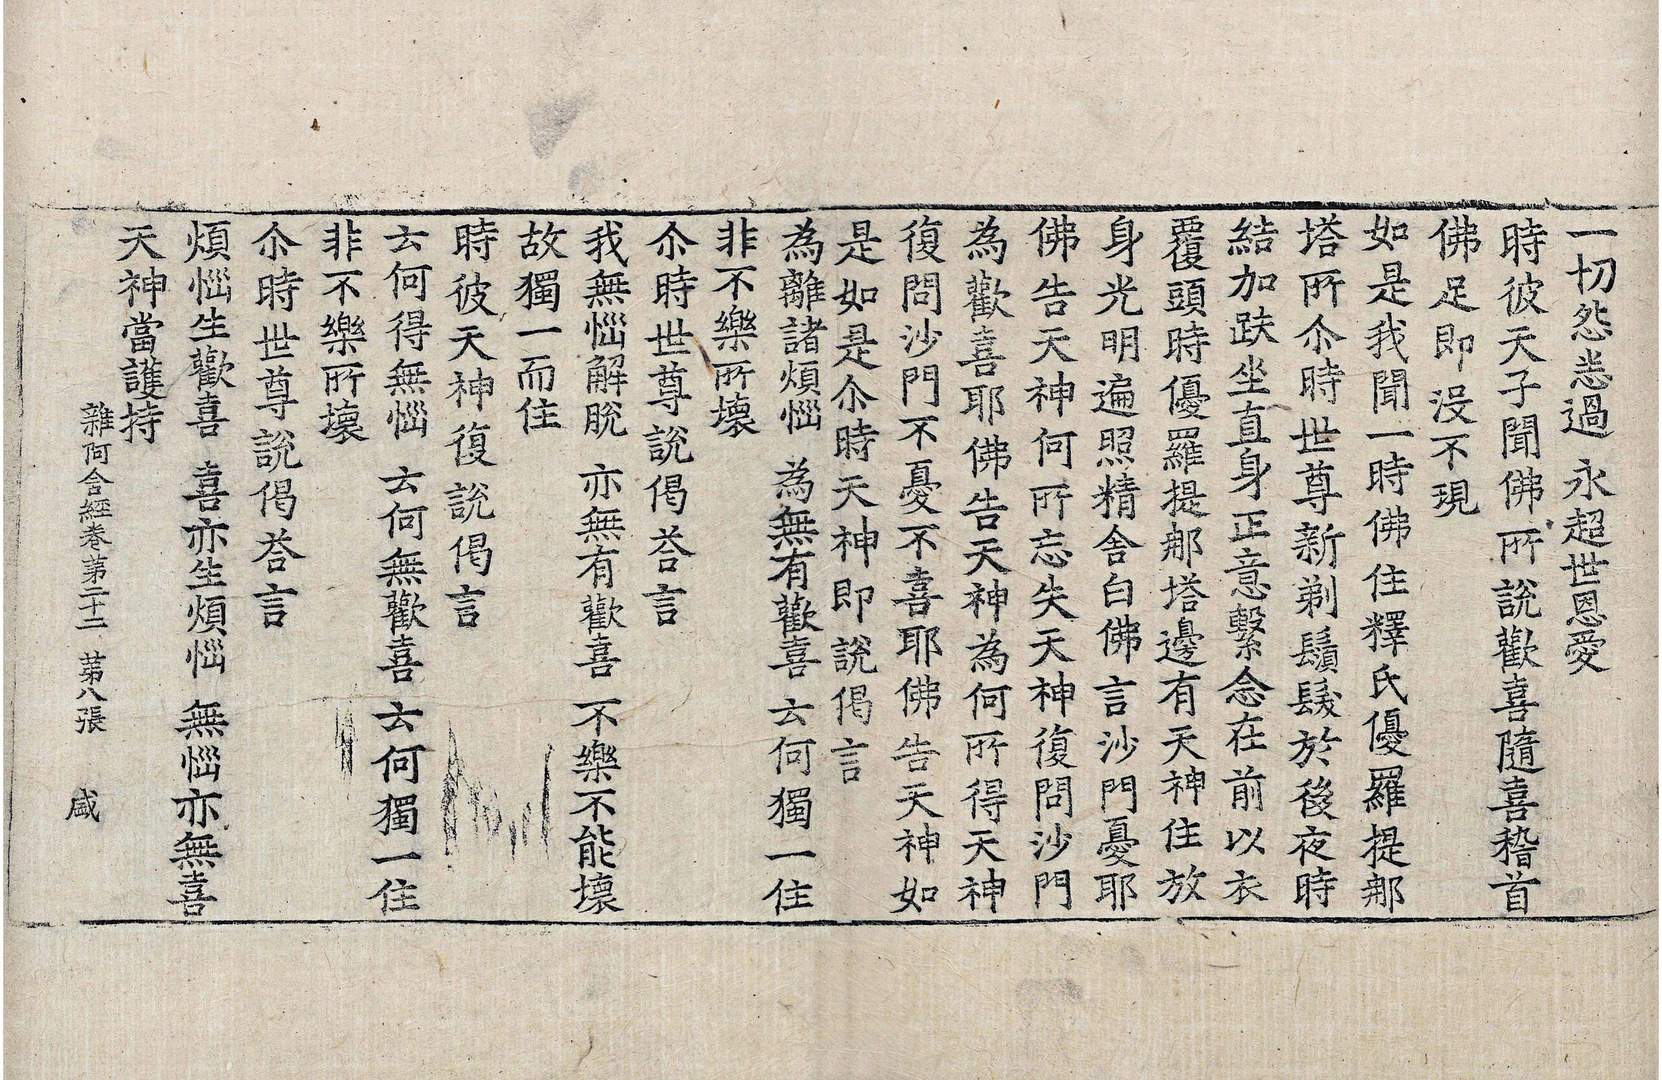 一切怨恙過 永超世恩愛
時彼天子聞佛所說歡喜隨喜稽首
佛足即没不現
如是我聞一時佛住釋氏優羅提那
塔所尒時世尊新剃鬚髮於後夜時
結加趺坐直身正意繫念在前以衣
覆頭時優羅提那塔邊有天神住放
身光明遍照精舍白佛言沙門憂耶
佛告天神何所忘失天神復問沙門
為歡喜耶佛告天神為何所得天神
復問沙門不憂不喜耶佛告天神如
是如是尒時天神即說偈言
為離諸煩惱 為無有歡喜 云何獨一住
非不樂所壞
尒時世尊說偈荅言
我無惱解脫 亦無有歡喜 不樂不能壞
故獨一而住
時彼天神復說偈言
云何得無惱 云何無歡喜 云何獨一住
非不樂所壞
尒時世尊說偈荅言
煩惱生歡喜 喜亦生煩惱 無惱亦無喜
天神當護持
雜阿含經卷第二十二 第八張 盛